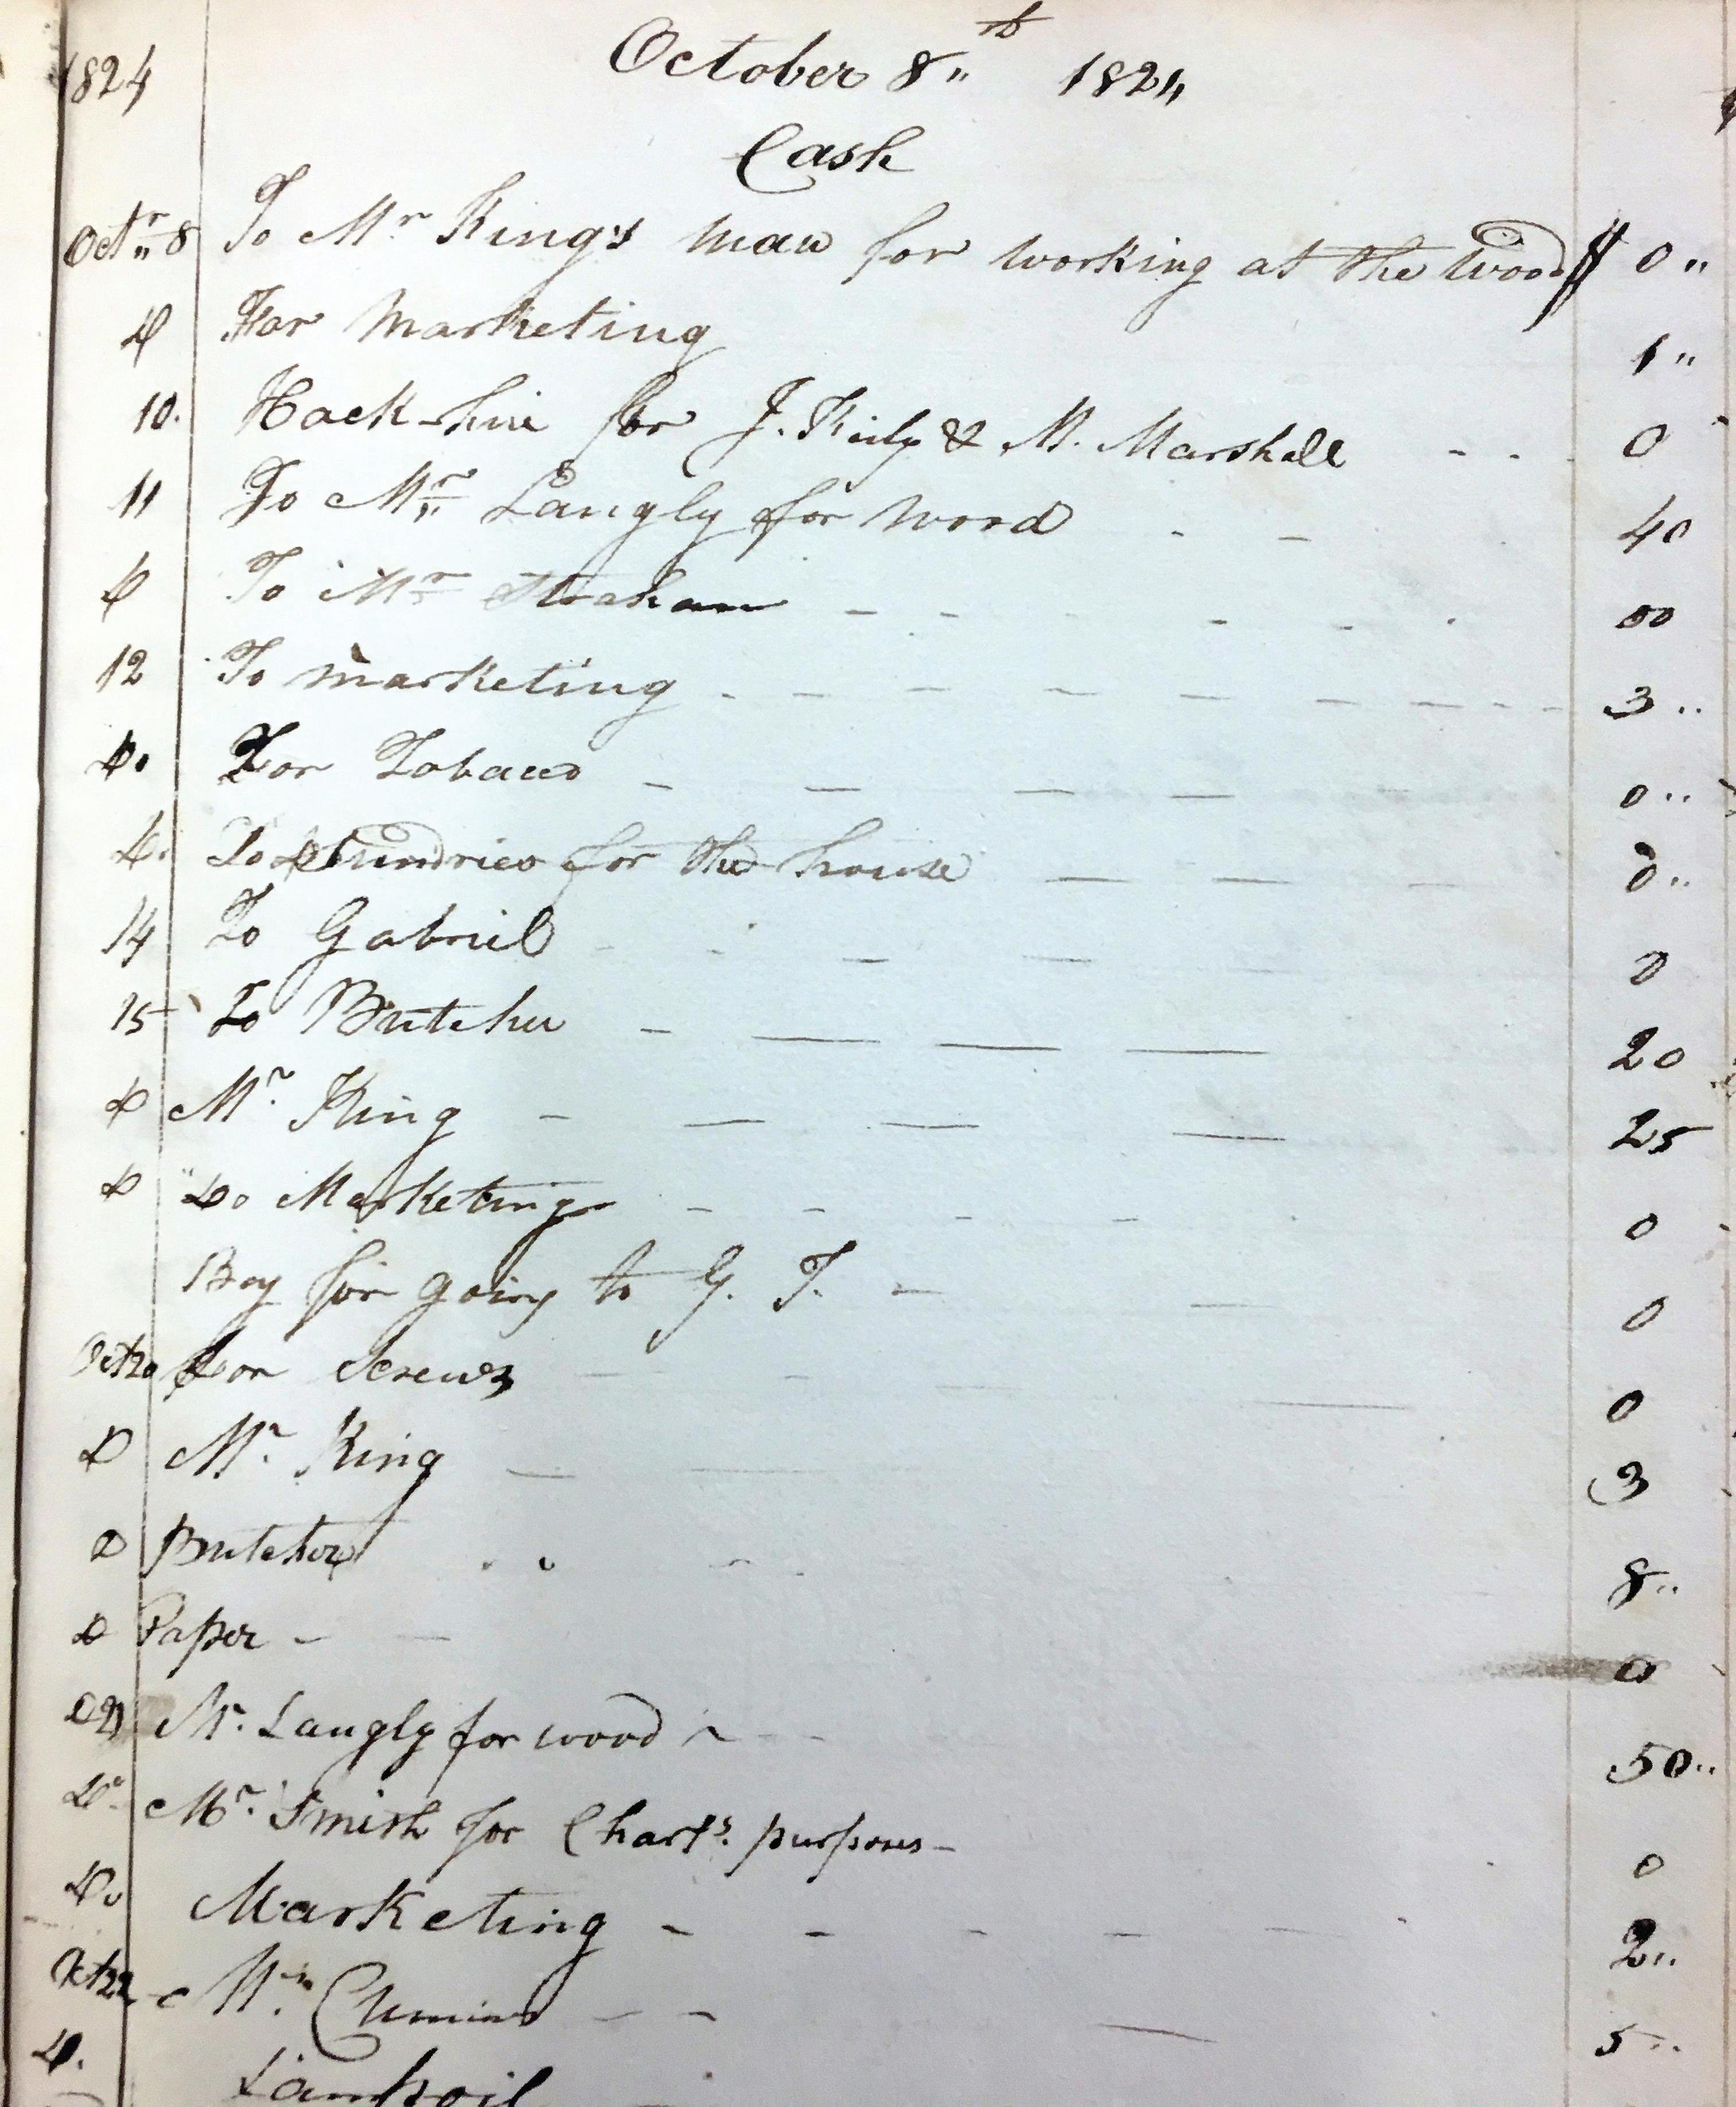 1824 October 8th 1824
Cash
Octr 8 To Mr King's man for working at the wood $ 0 "
Do For Marketing 1 "
10. Hack-hire for J. Kiely & M. Marshall - - - 0
11 To Mr Langly for wood - - 40
Do To Mr Strahan - - - - - 00
12 To marketing - - - - - - - - - 3 ..
Do. For Tobacco - - - - 0 ..
Do. To Sundries for the house - - - 0 ..
14 To Gabriel - - - - 0
15 To Butcher - - - - 20
Do Mr King - - - - 25
Do Do Marketing - - - - 0
Boy for going to G. T. - - 0
Oct 20 For Screws - - - - 0
Do Mr King - - 3
Do Butcher . . - - 8 ..
Do Paper - - 0
Do 21 Mr. Langly for wood - - 50 ..
Do Mr. Smith for Chart's. purposes - 0
Do Marketing - - - - - 2 ..
Oct 22 - - - 5 ..
Do. Lampoil